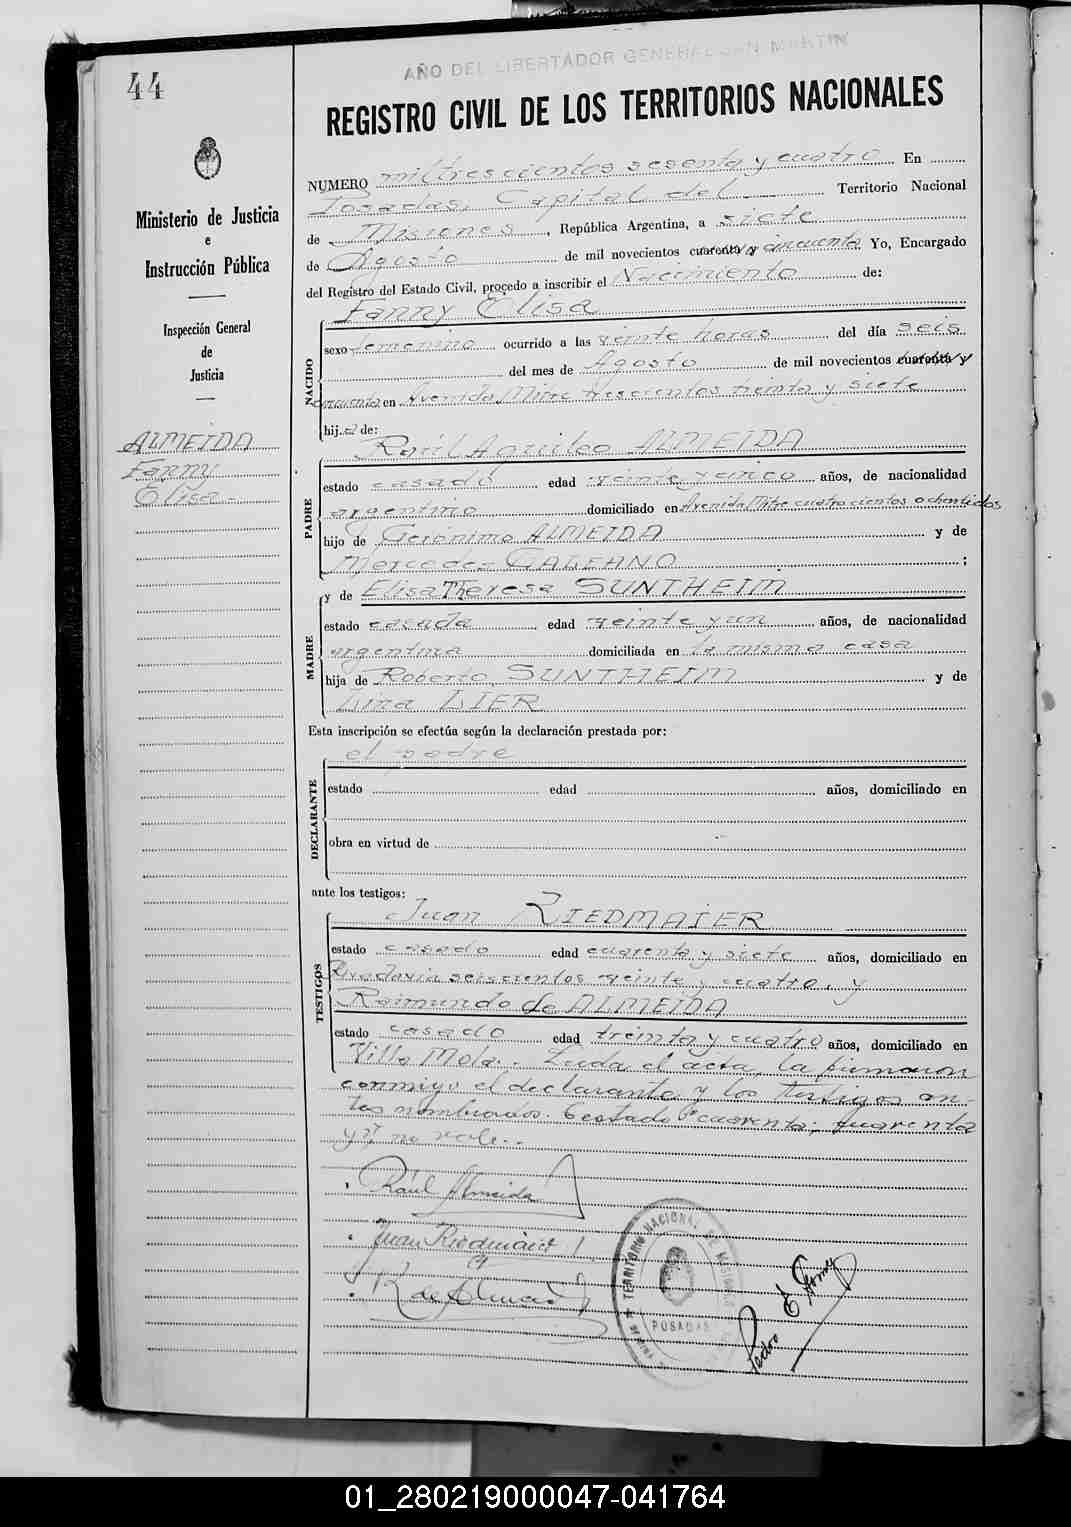 44
AÑO DEL LIBERTADOR GENERAL SAN MARTIN
REGISTRO CIVIL DE LOS TERRITORIOS NACIONALES
Ministerio de Justicia
e
Instrucción Pública
Inspección General
de
Justicia
ALMEIDA
Fanny
Elisa=
NUMERO mil trescientos sesenta y cuatro En
Posadas, Capital del Territorio Nacional
de Misiones, República Argentina, a siete
de Agosto de mil novecientos cuarenta y cincuenta Yo, Encargado
del Registro del Estado Civil, procedo a inscribir el Nacimiento de:
NACIDO
Fanny Elisa
sexo femenino ocurrido a las veinte horas del día seis
del mes de Agosto de mil novecientos cuarenta y
cincuenta en Avenida Mitre trescientos treinta y siete
hija de:
PADRE
Raúl Aquileo ALMEIDA
estado casado edad veinte y cinco años, de nacionalidad
argentino domiciliado en Avenida Mitre cuatrocientos ochentidos
hijo de Gerónimo ALMEIDA y de
Mercedes GALEANO ;
MADRE
y de Elisa Theresa SUNTHEIM
estado casada edad veinte y un años, de nacionalidad
argentina domiciliada en la misma casa
hija de Roberto SUNTHEIM y de
Lina LIER
Esta inscripción se efectúa según la declaración prestada por:
DECLARANTE
el padre
estado edad años, domiciliado en
obra en virtud de
ante los testigos:
TESTIGOS
Juan RIEDMAIER
estado casado edad cuarenta y siete años, domiciliado en
Rivadavia seiscientos veinte y cuatro, y
Raimundo de ALMEIDA
estado casado edad treinta y cuatro años, domiciliado en
Villa Mola. Leida el acta, la firmaron
conmigo el declarante y los testigos an-
tes nombrados. Testado "cuarenta; cuarenta
y" no vale.-
Raúl Almeida
Juan Riedmaier
R de Almeida
TERRITORIO NACIONAL DE MISIONES
POSADAS
Pedro E Gomez
01_280219000047-041764